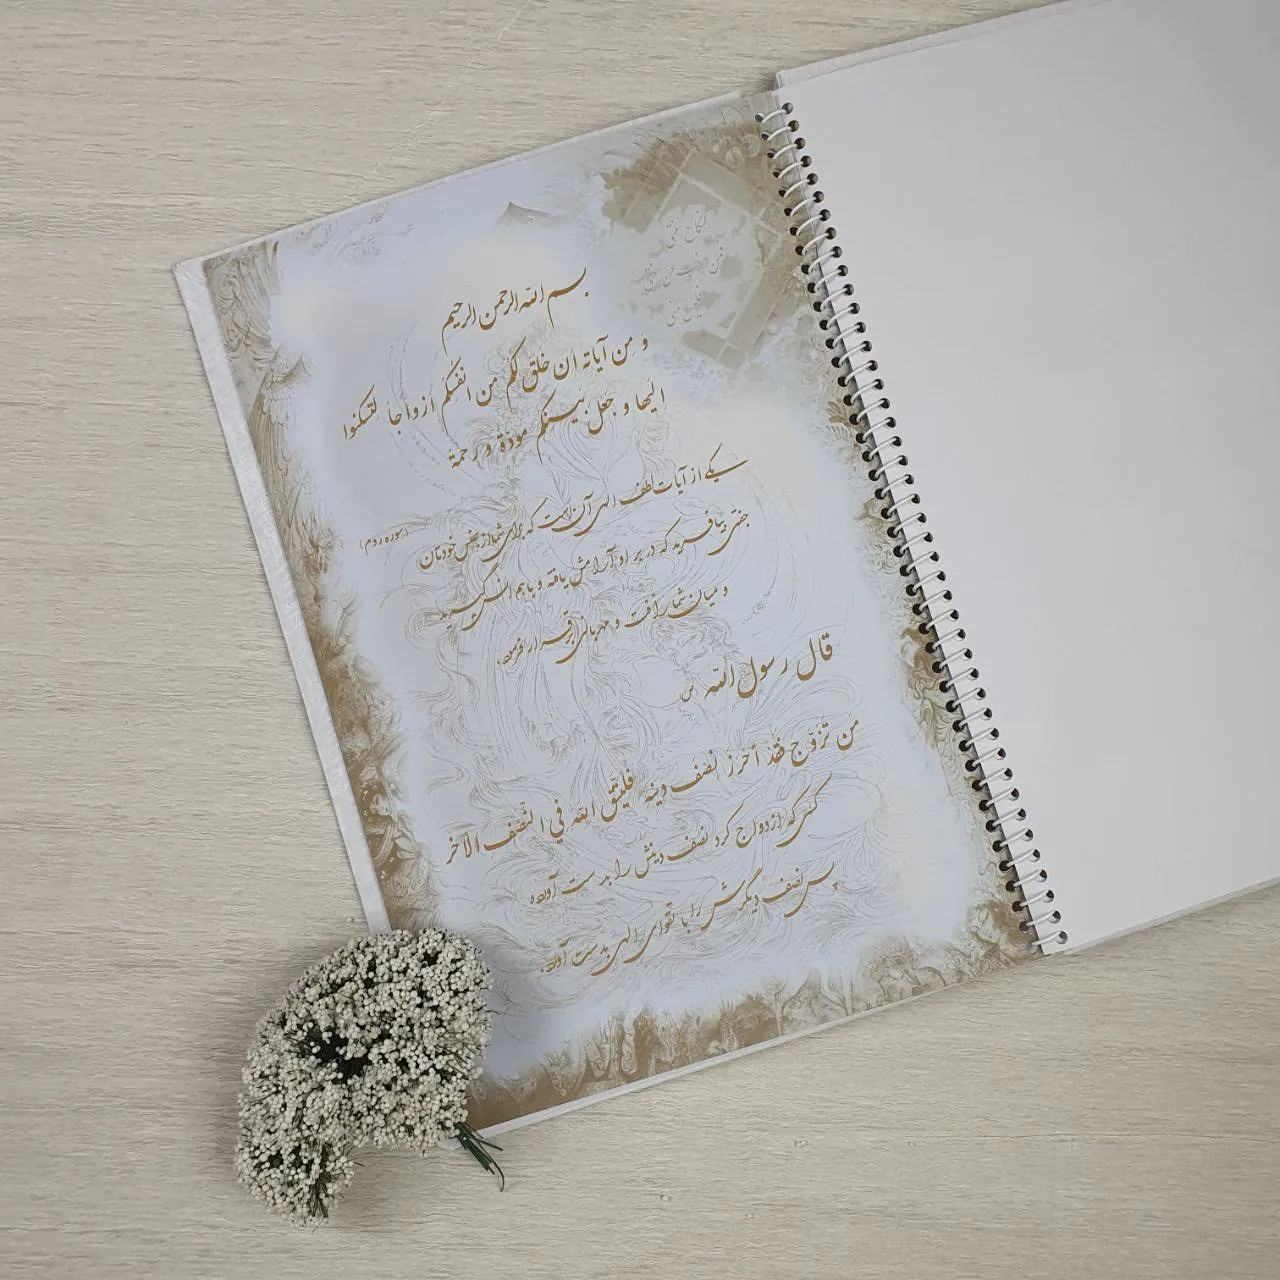 النکاح سنتی
فمن رغب عن سنتی
فلیس منی
بسم الله الرحمن الرحیم
و من آیاته ان خلق لکم من انفسکم ازواجاً لتسکنوا
الیها و جعل بینکم مودة و رحمة
یکی از آیات لطف الهی آن است که برای شما از بعض خودتان (سوره روم)
جفتی بیافرید که در بر او آرامش یافته و با هم انس گیرید
و میان شما رأفت و مهربانی برقرار فرمود.
قال رسول الله ص
من تزوّج فقد أحرز نصف دینه فلیتّق الله في النّصف الآخر
کسی که ازدواج کرد نصف دینش را بدست آورده
پس نصف دیگرش را با تقوای الهی بدست آورد.